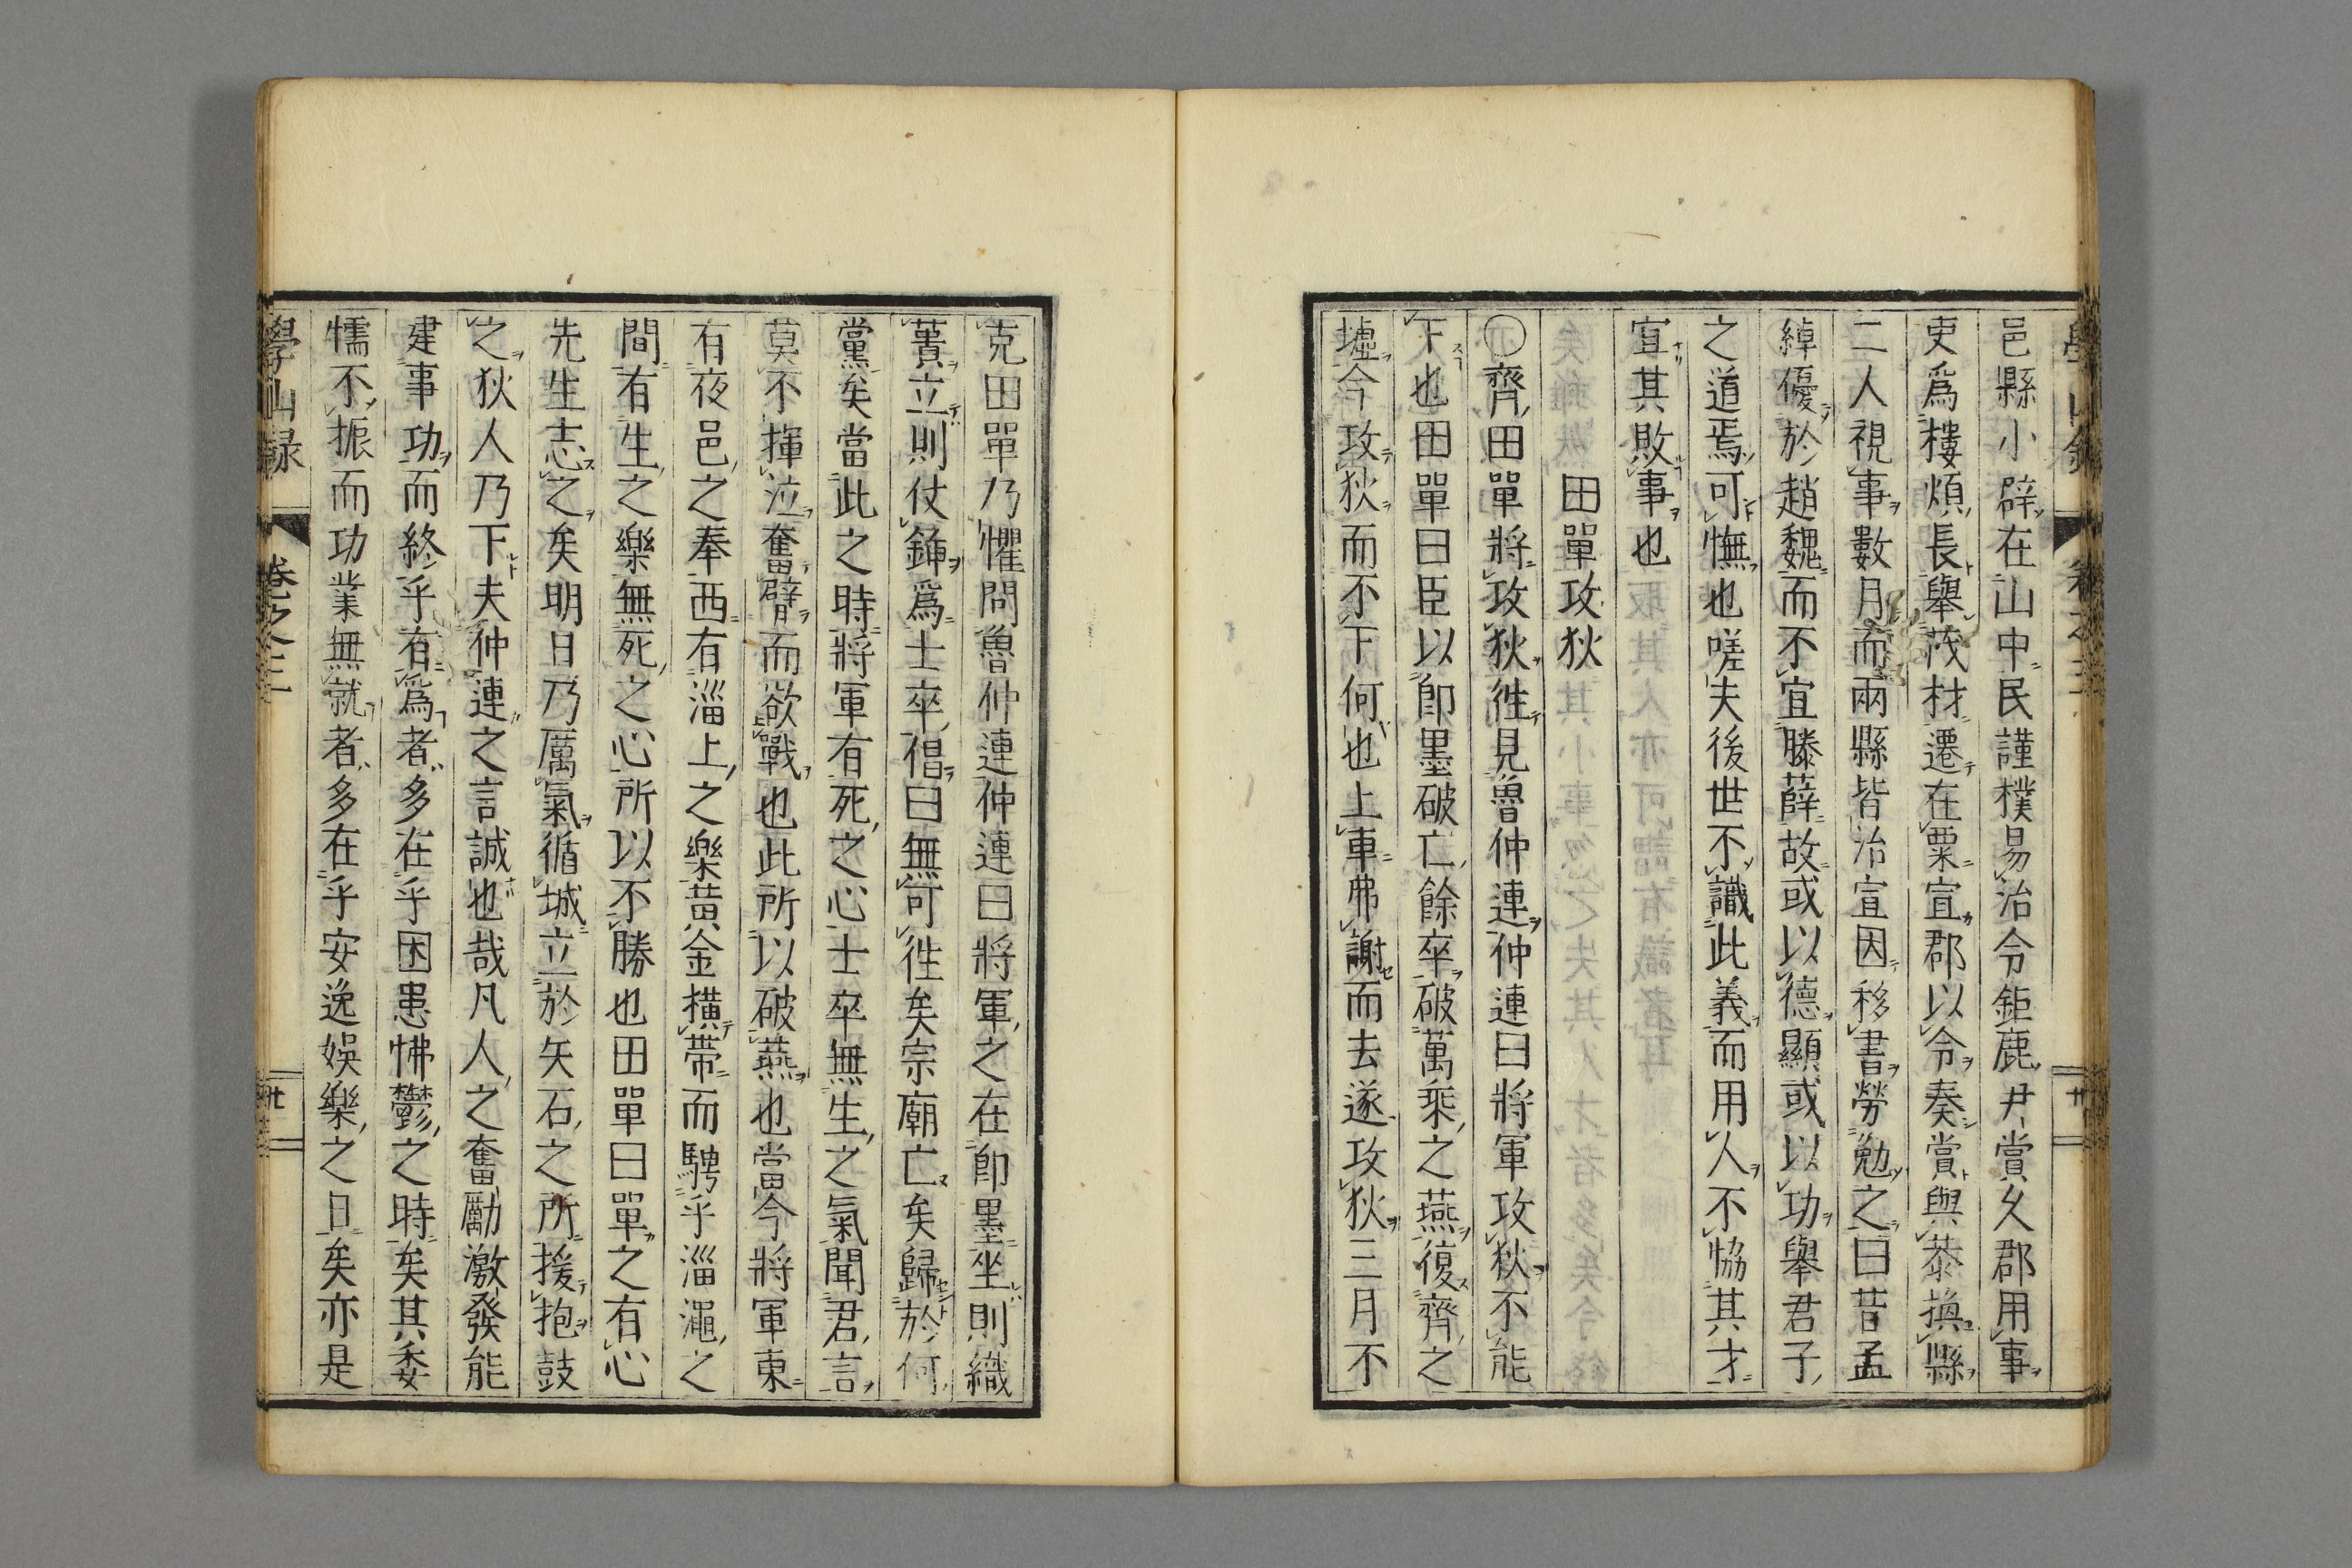 邑縣小辟在山中民謹樸易治令鉅鹿尹賞久郡用事
吏爲樓煩長舉茂材遷在粟宣郡以令奏賞與恭換縣
二人視事數月而兩縣皆治宣因移書勞勉之曰昔孟
綽優於趙魏而不宜滕薛故或以德顯或以功舉君子
之道焉可憮也嗟夫後世不識此義而用人不恊其才
宜其敗事也
田單攻狄
〇齊田單將攻狄徃見魯仲連仲連曰將軍攻狄不能
下也田單曰臣以卽墨破亡餘卒破萬乘之燕復齊之
墟今攻狄而不下何也上車弗謝而去遂攻狄三月不
克田單乃懼問魯仲連仲連曰將軍之在卽墨坐則織
蕢立則仗鍤爲士卒倡曰無可徃矣宗廟亡矣歸於何
黨矣當此之時將軍有死之心士卒無生之氣聞君言
莫不揮泣奮臂而欲戰也此所以破燕也當今將軍東
有夜邑之奉西有淄上之樂黄金橫帶而騁乎淄澠之
間有生之樂無死之心所以不勝也田單曰單之有心
先生志之矣明日乃厲氣循城立於矢石之所援抱鼓
之狄人乃下夫仲連之言誠也哉凡人之奮勵激發能
建事功而終乎有爲者多在乎困患怫鬱之時矣其委
懦不振而功業無就者多在乎安逸娛樂之日矣亦是
學山録 卷之三 廿